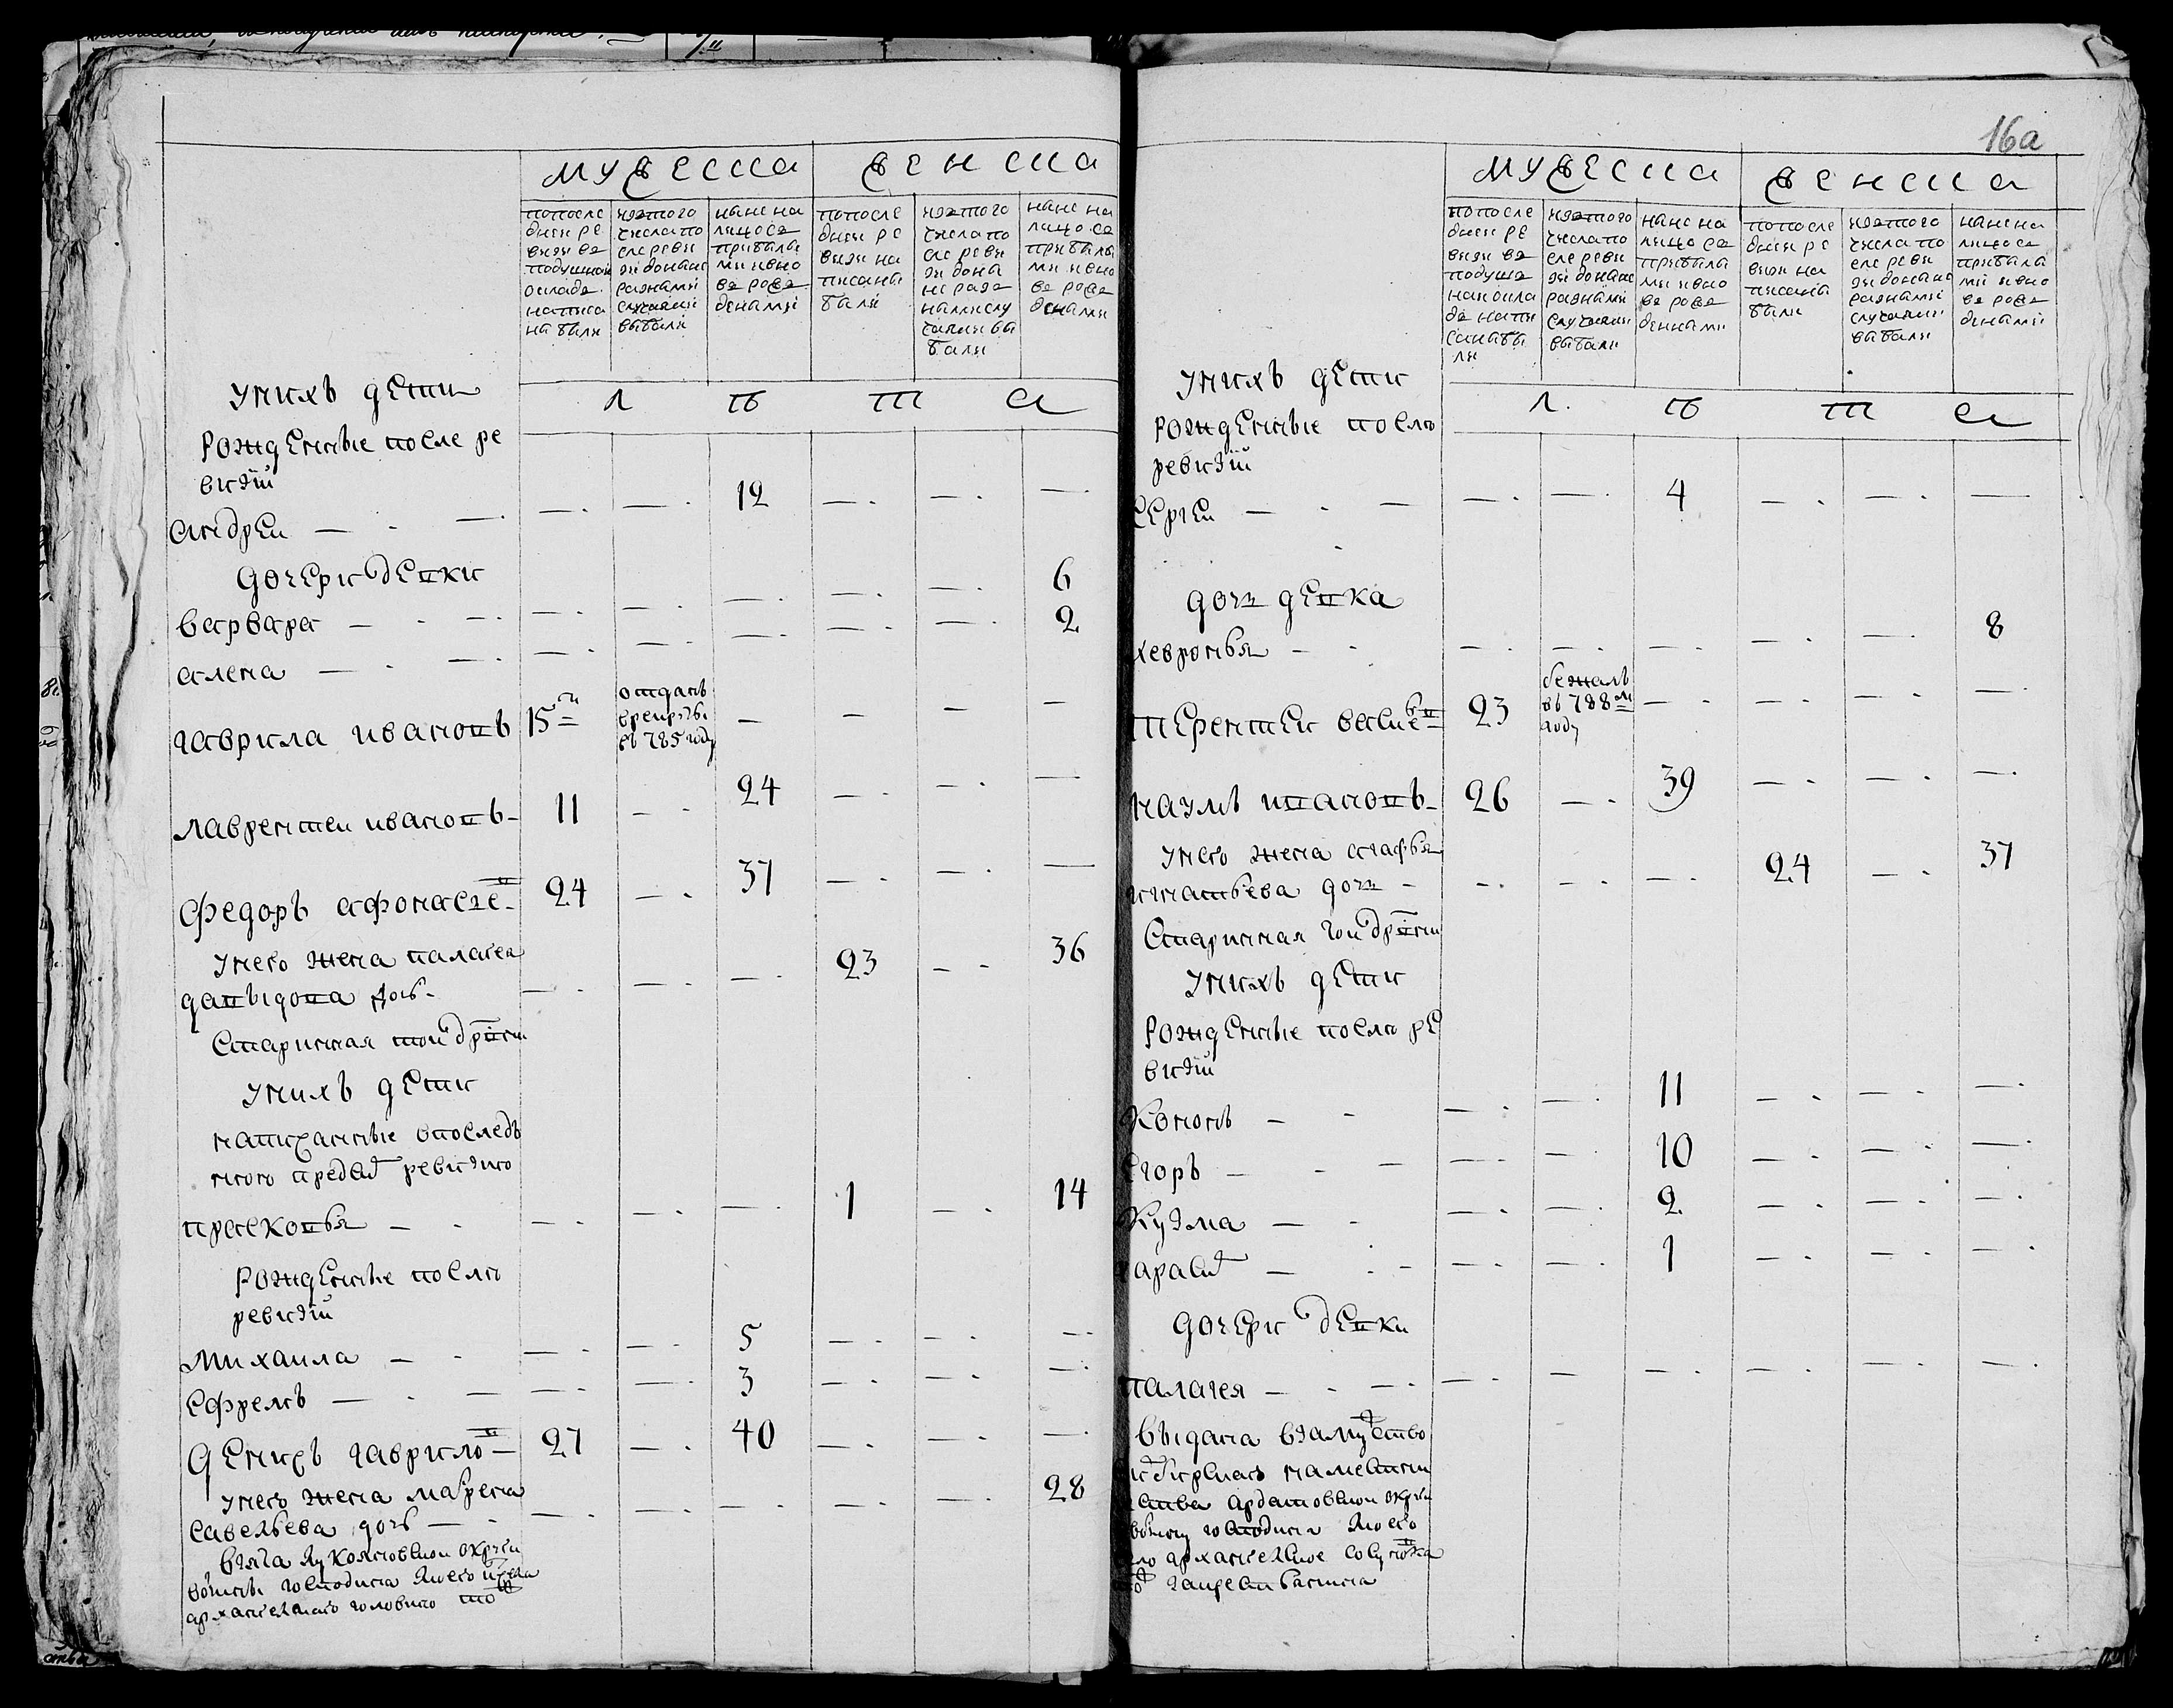 16а
мужеска
женска
попосле
днеи ре
визи ва
подушном
окладе
написа
на были
изтого
числа по
сле реви
зи донане
разнами
случаями
выбали
нане на
лицо са
прибали
ми иRно
ва рожа
денами
попосле
днеи ре
визи на
писаны
были
изтого
числа по
сле реви
зи дона
не разна
нами слу
чаями вы
бали
нане на
лицо са
прибали
ми ивно
ва рожа
денами
л ѣ т а
унихъ дети
рожденные после ре
визiи
андреи — — — — 12 — — —
дочери девки
варвара — — — — — — — — 6
алена — — — — — — — 2
гаврила ивановъ 15
отданъ
в рекруты
въ 785 году
— — — —
лаврентеи ивановъ 11 — 24 — — —
федоръ афонасье 24 — 37 — — —
унего жена палагея
давыдова дочь — — — 23 — 36
старинная тои древни
унихъ дети
написанные впоследъ
нюю пред сию ревизию
прасковья — — — — 1 — 14
рожденные после
ревизiи
михаила — — — 5 — — —
ефремъ — — — 3 — — —
денисъ гаврило 27 — 40 — — —
унего жена маврена
савельева дочь — — — — — — 28
взята лукояновскои округи
господина
мужеска
женска
попосле
днеи ре
визи ва
подуша
наи окла
де напи
саны бы
ли
изтого
числа по
сле реви
зи донане
разнами
случаями
выбали
нане на
лицо са
прибали
ми ивно
ва рожа
денами
попосле
днеи ре
визи на
писаны
были
изтого
числа по
сле реви
зи донане
разнами
случаями
выбали
нане на
лицо са
прибали
ми ивно
ва рожа
денами
л ѣ т а
унихъ дети
рожденные после
ревизiи
сергеи — — — — 4 — — —
дочь девка
хевронья — — — — — — — 8
терентеи василье 23
бежалъ
въ 788 м
году
— — — —
наумъ ивановъ 26 — 39 — — —
унего жена агафья
игнатьева дочь — — — 24 — 37
старинная тои древни
унихъ дети
рожденные после ре
визiи
кононъ — — — 11 — — —
егоръ — — — 10 — — —
кузма — — — 2 — — —
тарасъ — — — 1 — — —
дочери девки
палагея — — — — — — — —
выдана взамужство
симбирскаго наместни
чества ардатовскои округи
господина
архангелское